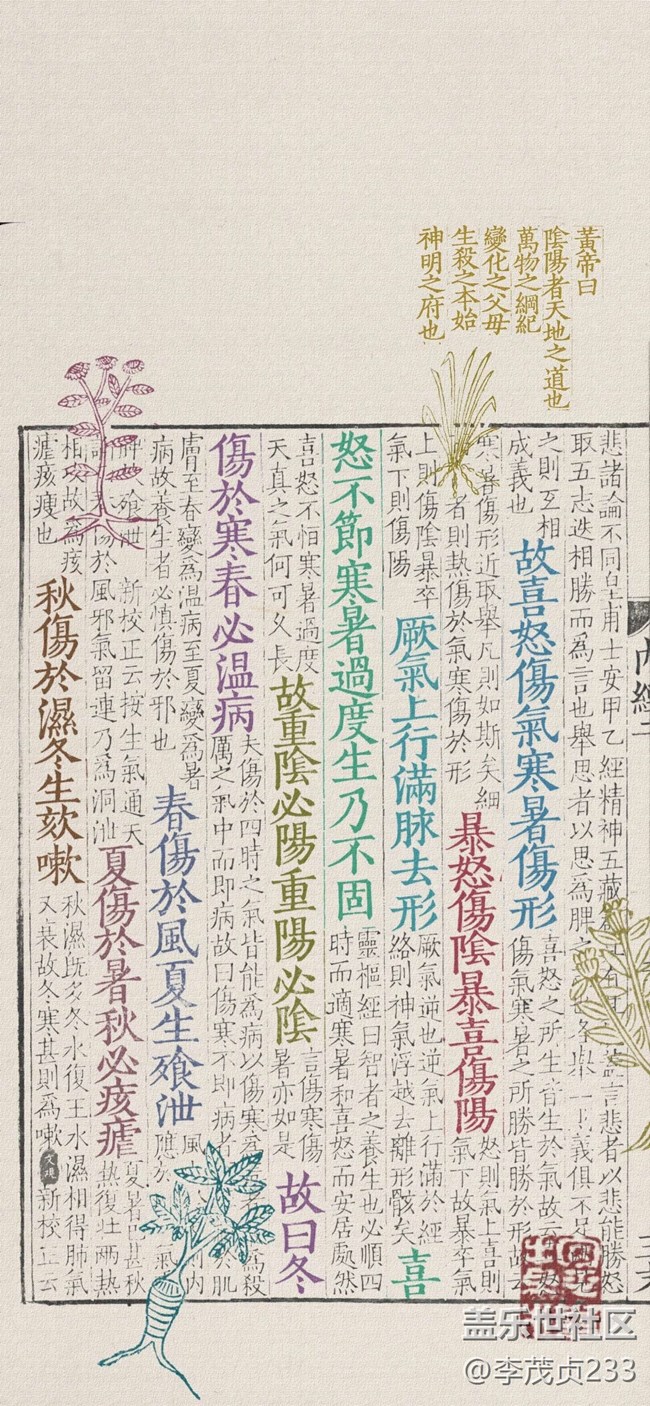 黃帝曰
陰陽者天地之道也
萬物之綱紀
變化之父母
生殺之本始
神明之府也
內經二
悲諸論不同皇甫士安甲乙經精神五藏
言悲者以悲能勝怒
取五志迭相勝而爲言也舉思者以思爲脾之
義俱不足
之則互相
成義也
故喜怒傷氣寒暑傷形
喜怒之所生皆生於氣故云
傷氣寒暑之所勝皆勝於形故云
寒暑傷形近取舉凡則如斯矣細
者則熱傷於氣寒傷於形
暴怒傷陰暴喜傷陽
怒則氣上喜則
氣下故暴卒氣
上則傷陰暴卒
氣下則傷陽
厥氣上行滿脉去形
厥氣逆也逆氣上行滿於經
絡則神氣浮越去離形骸矣
喜
怒不節寒暑過度生乃不固
靈樞經曰智者之養生也必順四
時而適寒暑和喜怒而安居處然
喜怒不恒寒暑過度
天真之氣何可久長
故重陰必陽重陽必陰
言傷寒傷
暑亦如是
故曰冬
傷於寒春必温病
夫傷於四時之氣皆能爲病以傷寒爲
爲殺
厲之氣中而即病故曰傷寒不即病者
於肌
膚至春變爲温病至夏變爲暑
病故養生者必慎傷於邪也
春傷於風夏生飱泄
風
內
應於
氣
飱泄
新校正云按生氣通天
傷於
風邪氣留連乃爲洞泄
夏傷於暑秋必痎瘧
夏暑已甚秋
熱復壯兩熱
相攻故爲痎
瘧痎瘦也
秋傷於濕冬生欬嗽
秋濕既多冬水復王水濕相得肺氣
又衰故冬寒甚則爲嗽
新校正云
盖乐世社区
@李茂贞233